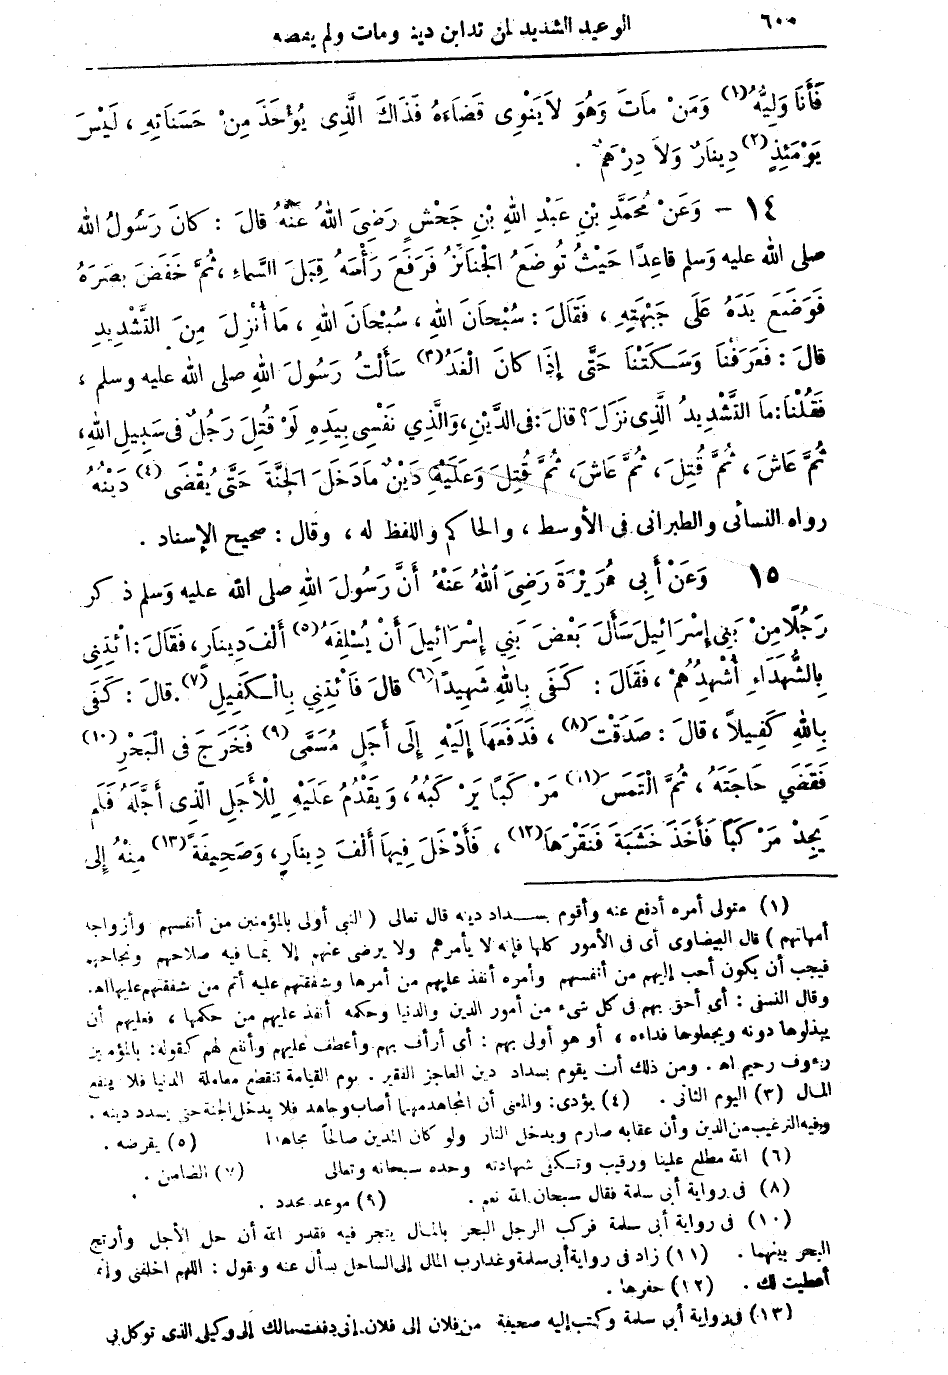 ٦٠٠ الوعيد الشديد لمن تداين دينا ومات ولم يقضه
فَأَنَا وَلِيُّهُ (١) وَمَنْ مَاتَ وَهُوَ لَا يَنْوِى قَضَاءَهُ فَذَاكَ الَّذِى يُؤْخَذُ مِنْ حَسَنَاتِهِ ، لَيْسَ
يَوْمَئِذٍ (٢) دِينَارٌ وَلاَ دِرْهَمٌ .
١٤ – وَعَنْ مُحَمَّدِ بْنِ عَبْدِ اللهِ بْنِ جَحْشٍ رَضِىَ اللهُ عَنْهُ قالَ : كانَ رَسُولُ الله
صلى الله عليه وَسلم قاعِدًا حَيْثُ تُوضَعُ الْجَنَائزُ فَرَفَعَ رَأْسَهُ قِبَلَ السَّماءِ ، ثُمَّ خَفَضَ بَصَرَهُ
فَوَضَعَ يَدَهُ عَلَى جَبْهَتِهِ ، فَقَالَ : سُبْحَانَ اللهِ ، سُبْحَانَ اللهِ ، مَا أُنْزِلَ مِنَ التَّشْدِيدِ
قالَ : فَعَرَفْنَا وَسَكَتْنَا حَتَّى إِذَا كانَ الْغَدُ (٣) سَأَلْتُ رَسُولَ اللهِ صلى الله عليه وسلم ،
فَقُلْنَا : مَا التَّشْدِيدُ الَّذِى نَزَلَ ؟ قالَ : فى الدَّيْنِ ، وَالَّذِي نَفْسِى بِيَدِهِ لَوْ قُتِلَ رَجُلٌ فى سَبِيلِ اللهِ ،
ثُمَّ عَاشَ ، ثُمَّ قُتِلَ ، ثُمَّ عَاشَ ، ثُمَّ قُتِلَ وَعَلَيْهِ دَيْنٌ مَا دَخَلَ الْجَنَّةَ حَتَّى يُقْضَى (٤) دَيْنُهُ
رواه النسائى والطبرانى فى الأوسط ، والحاكم واللفظ له ، وقال : صحيح الإسناد .
١٥ وَعَنْ أَبِى هُرَيْرَةَ رَضِىَ اللهُ عَنْهُ أَنَّ رَسُولَ اللهِ صلى الله عليه وَسلم ذكر
رَجُلًا مِنْ بَنِى إِسْرَائِيلَ سَأَلَ بَعْضَ بَنِي إِسْرَائِيلَ أَنْ يُسْلِفَهُ (٥) أَلْفَ دِينَارٍ ، فَقَالَ : ائْتِنِى
بِالشُّهَدَاءِ أُشْهِدُهُمْ ، فَقَالَ : كَفَى بِاللهِ شَهِيدًا (٦) قالَ فَأْتِنِي بِالْكَفِيلِ (٧) . قالَ : كَفَى
بِاللهِ كَفِيلاً ، قالَ : صَدَقْتَ (٨) ، فَدَفَعَهَا إِلَيْهِ إِلَى أَجَلٍ مُسَمًّى (٩) فَخَرَجَ فى الْبَحْرِ (١٠)
فَقَضَي حَاجَتَهُ ، ثُمَّ الْتَمَسَ (١١) مَرْكَبًا يَرْكَبُهُ ، وَيَقْدُمُ عَلَيْهِ لِلْأَجَلِ الَّذِى أَجَّلَهُ فَلَم
يَجِدْ مَرْكَبًا فَأَخَذَ خَشَبَةً فَنَقَرَهَا (١٢) ، فَأَدْخَلَ فِيهَا أَلْفَ دِينَارٍ ، وَصَحِيفَةً (١٣) مِنْهُ إِلى
(١) متولى أمره أدفع عنه وأقوم بسداد دينه قال تعالى ( النبى أولى بالمؤمنين من أنفسهم وأزواجه
أمهاتهم ) قال البيضاوى أى فى الأمور كلها فإنه لا يأمرهم ولا يرضى عنهم إلا بما فيه صلاحهم ونجاحهم
فيجب أن يكون أحب إليهم من أنفسهم وأمره أنفذ عليهم من أمرها وشفقتهم عليه أتم من شفقتهم عليها اه.
وقال النسفى : أى أحق بهم فى كل شىء من أمور الدين والدنيا وحكمه أنفذ عليهم من حكمها ، فعليهم أن
يبذلوها دونه ويجعلوها فداءه ، أو هو أولى بهم : أى أرأف بهم وأعطف عليهم وأنفع لهم كقوله : بالمؤمنين
رءوف رحيم اه . ومن ذلك أن يقوم بسداد دين العاجز الفقير . يوم القيامة تنقطع معاملة الدنيا فلا ينفع
المال (٣) اليوم الثانى . (٤) يؤدى : والمعنى أن المجاهد مهما أصاب وجاهد فلا يدخل الجنة حتى يسدد دينه .
وفيه الترغيب من الدين وأن عقابه صارم ويدخل النار ولو كان المدين صالحاً مجاهدا (٥) يقرضه .
(٦) الله مطلع علينا ورقيب وتكفى شهادته وحده سبحانه وتعالى (٧) الضامن .
(٨) فى رواية أبى سلمة فقال سبحان الله نعم . (٩) موعد محدد .
(١٠) فى رواية أبى سلمة فركب الرجل البحر بالمال يتجر فيه فقدر الله أن حل الأجل وأرتج
البحر بينهما . (١١) زاد فى رواية أبى سلمة وغدا رب المال إلى الساحل يسأل عنه ويقول : اللهم اخلفنى وإنما
أعطيت لك . (١٢) حفرها .
(١٣) فى رواية أبى سلمة وكتب إليه صحيفة من فلان إلى فلان . إنى دفعت مالك إلى وكيلى الذى توكل بى